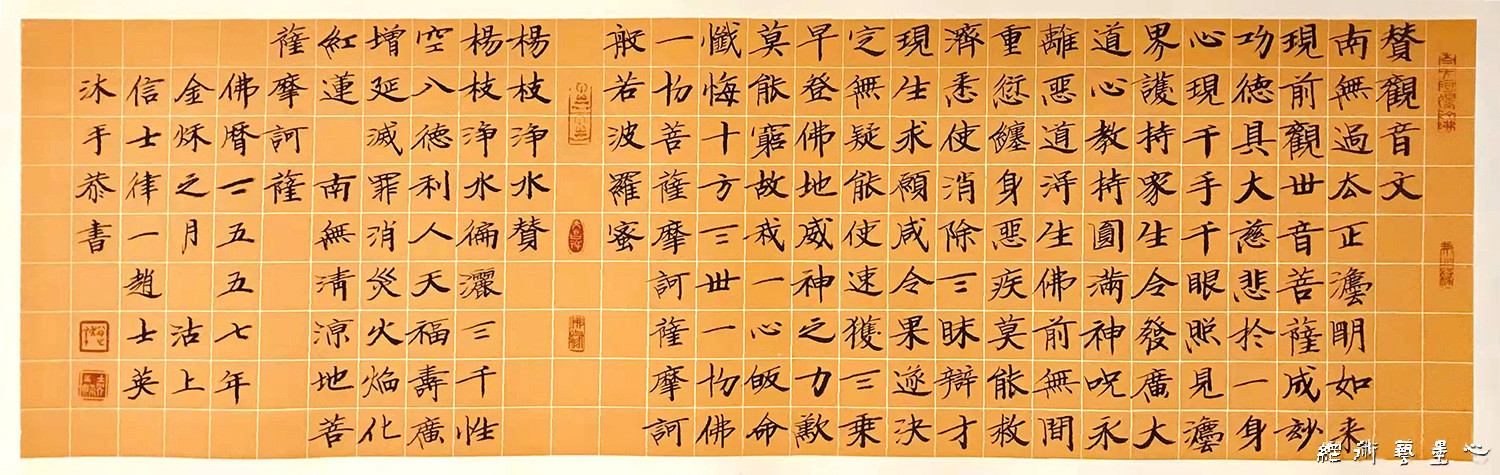 賛觀音文
南無過去正灋明如来
現前觀世音菩薩成妙
功德具大慈悲於一身
心現千手千眼照見灋
界護持衆生令發廣大
道心教持圓滿神呪永
離惡道淂生佛前無間
重愆纏身惡疾莫能救
濟悉使消除三昧辯才
現生求願咸令果遂決
定無疑能使速獲三乘
早登佛地威神之力歎
莫能窮故我一心皈命
懺悔十方三世一切佛
一切菩薩摩訶薩摩訶
般若波羅蜜
楊枝浄水賛
楊枝浄水徧灑三千性
空八德利人天福壽廣
增延滅罪消災火焰化
紅蓮南無清涼地菩
薩摩訶薩
佛曆二五五七年
金秌之月沽上
信士律一趙士英
沐手恭書